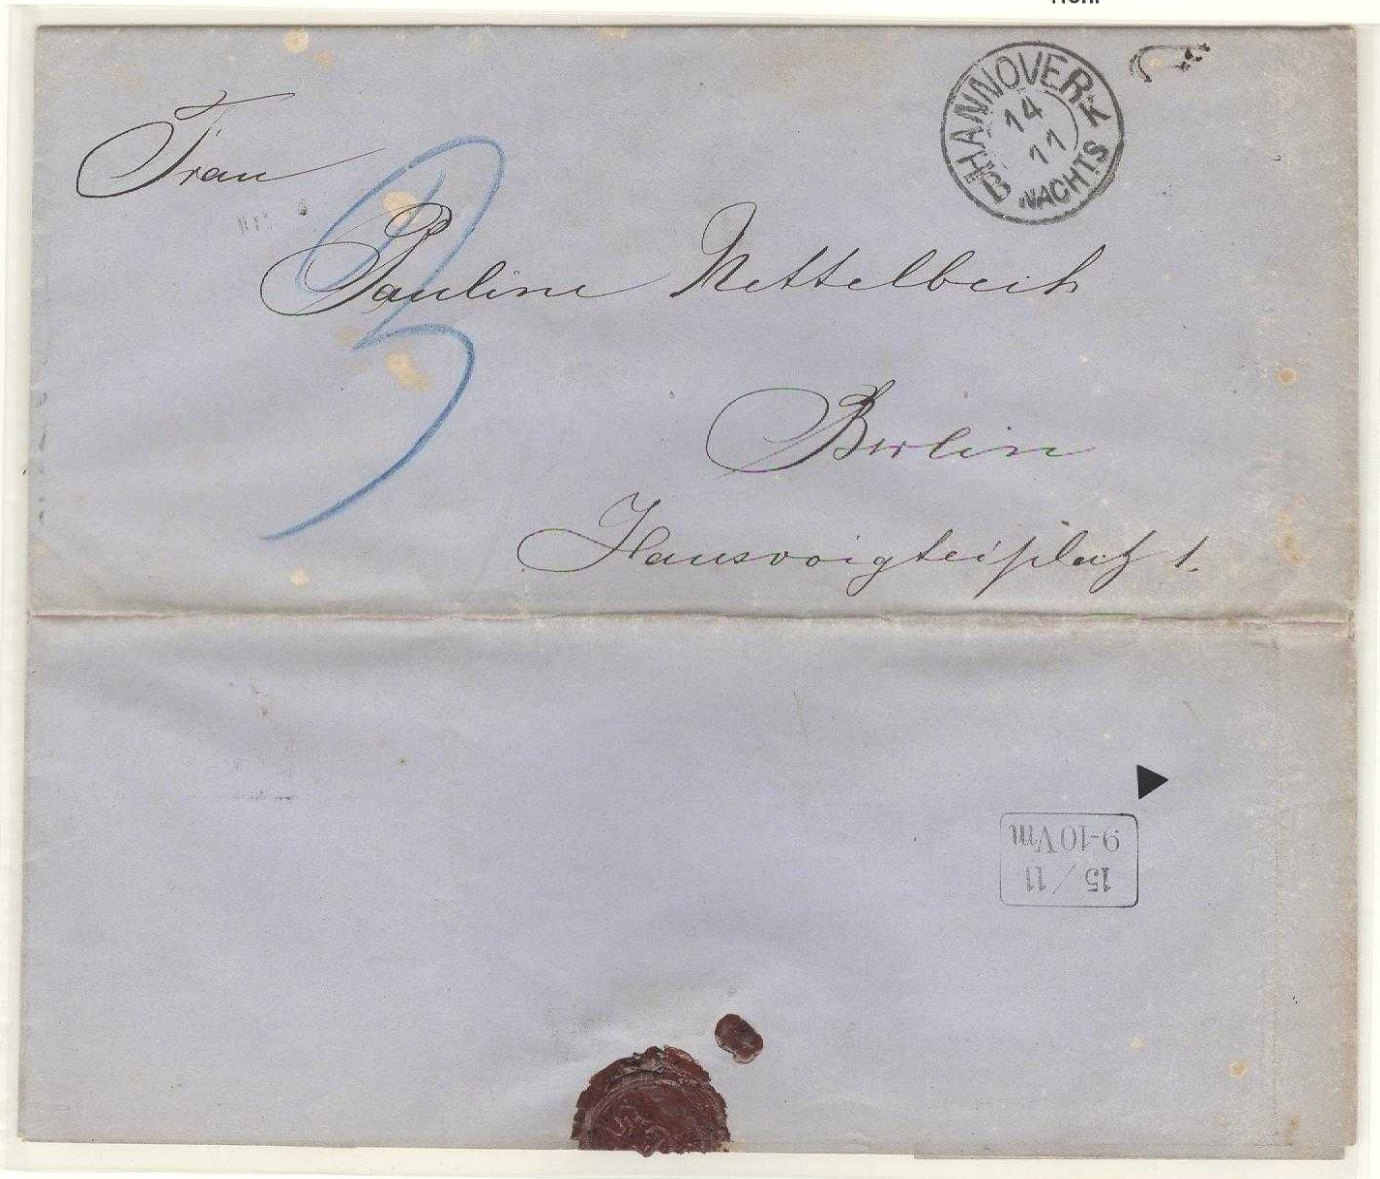 HANNOVER
14
11
B NACHTS
Frau
3
Pauline Nettelbeck
Berlin
Hausvoigteiplatz 1.
15/11
9-10 Vm